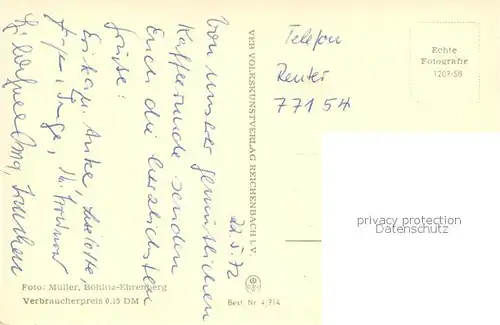 22.5.72
Von unserer gemütlichen
Kaffeerunde senden
Euch die herzlichsten
Grüße!
Anke, Liselotte,
Inge,
Oma,
Telefon
Reuter
77154
Echte
Fotografie
1207/58
VEB VOLKSKUNSTVERLAG REICHENBACH I. V.
privacy protection
Foto: Müller, Böhlitz-Ehrenberg
Verbraucherpreis 0,15 DM
Best. Nr 4/914